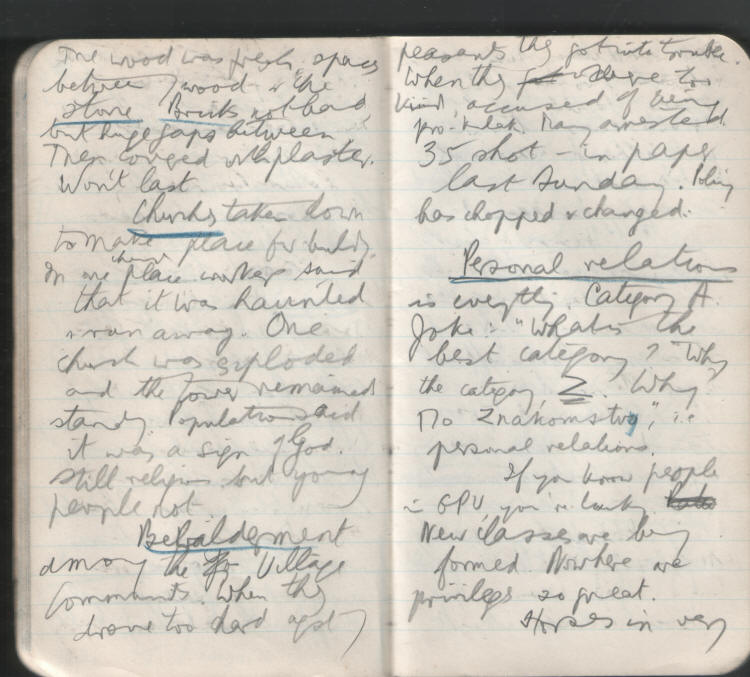 The wood was fresh, spaces
between wood & the
stone Bricks not bad
but huge gaps between
Then covered with plaster.
Won't last
Churches taken down
to make place for buildg.
In one church place workers said
that it was haunted
& ran away. One
church was exploded
and the tower remained
standg. Population said
it was a sign of God.
Still religious but young
people not.
Bewilderment
among the Village
Communists. When they
drove too hard agst
peasants they got into trouble.
When they were too
kind, accused of being
pro-kulak. Many arrested.
35 shot - in paper
last Sunday. Policy
has chopped & changed.
Personal relations
is everythg. Category A.
Joke: "What is the
best category?" "Why
the category Z." "Why?"
"По Znakomstvu", i.e.
personal relations.
If you know people
in GPU, you're lucky
New classes are being
formed. Nowhere are
privileges so great.
Horses in very